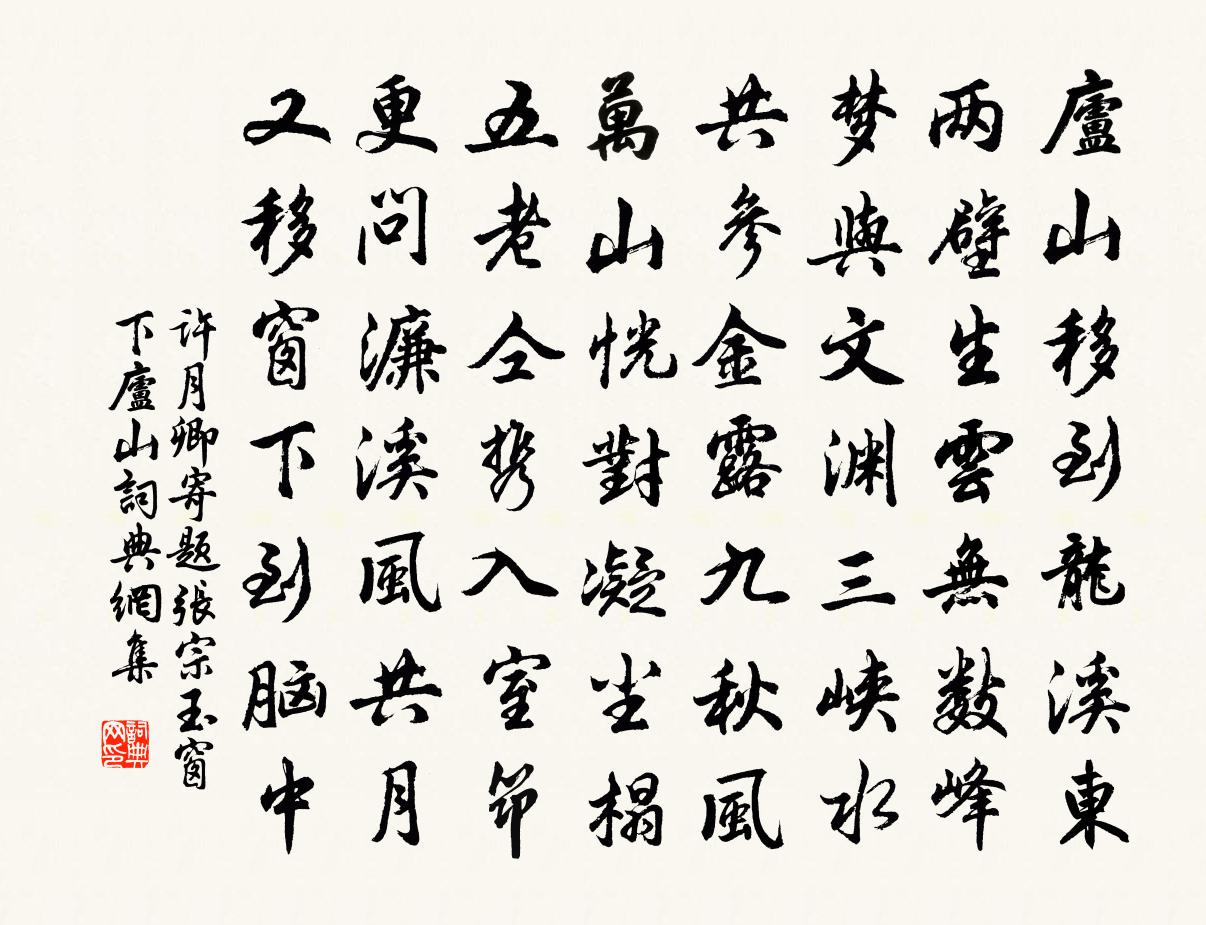 廬山移到龍溪東
两壁生雲無數峰
梦與文渊三峡水
共參金露九秋風
萬山恍對凝尘榻
五老仝携入室笻
更問濂溪風共月
又移窗下到脑中
许月卿寄题張宗玉窗
下廬山詞典網集
詞典网印